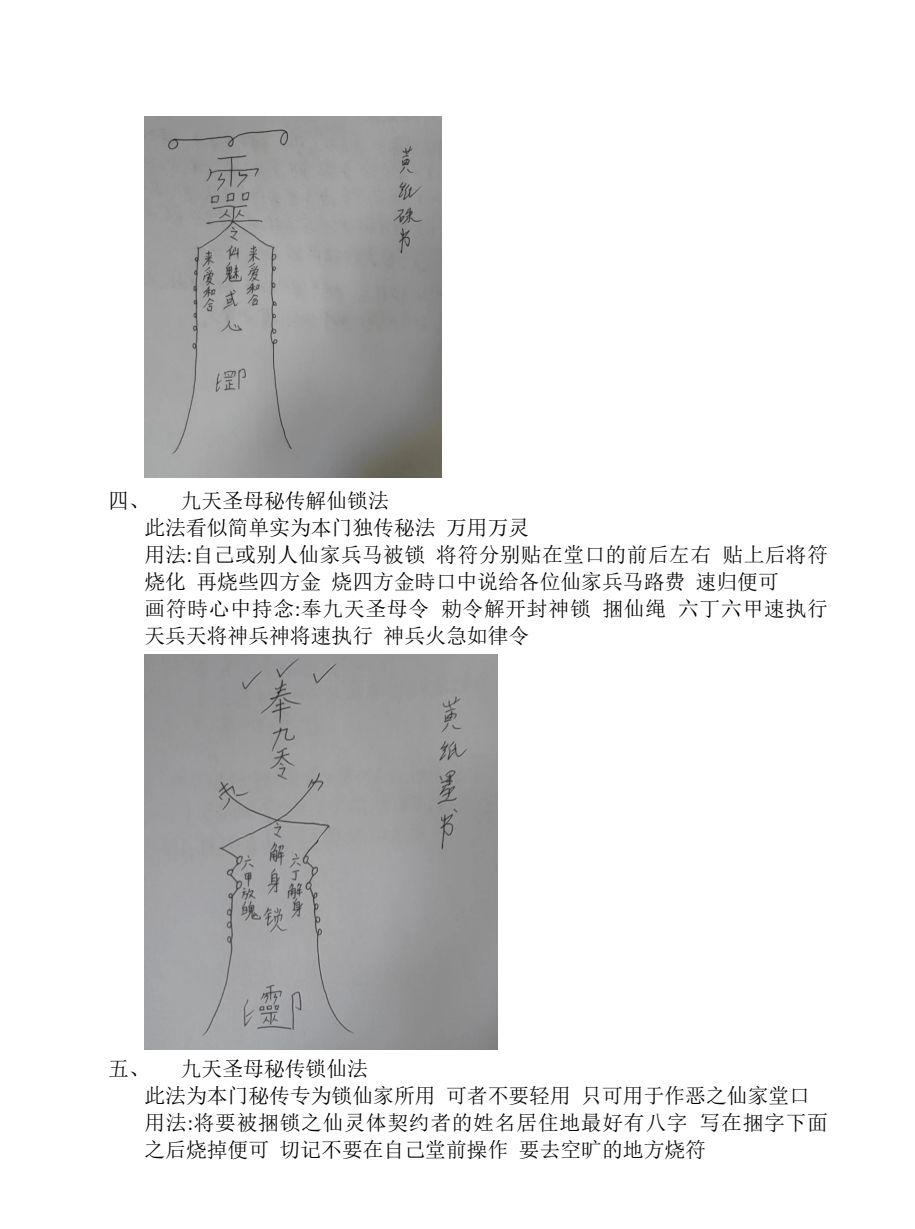 靈
之
仙
魅
或
人
来爱和合
来爱和合
黄纸硃书
四、 九天圣母秘传解仙锁法
此法看似简单实为本门独传秘法 万用万灵
用法:自己或别人仙家兵马被锁 将符分别贴在堂口的前后左右 贴上后将符
烧化 再烧些四方金 烧四方金時口中说给各位仙家兵马路费 速归便可
画符時心中持念:奉九天圣母令 勅令解开封神锁 捆仙绳 六丁六甲速执行
天兵天将神兵神将速执行 神兵火急如律令
奉九天令
之解身锁
六甲放魄
六丁解身
靈
黄纸墨书
五、 九天圣母秘传锁仙法
此法为本门秘传专为锁仙家所用 可者不要轻用 只可用于作恶之仙家堂口
用法:将要被捆锁之仙灵体契约者的姓名居住地最好有八字 写在捆字下面
之后烧掉便可 切记不要在自己堂前操作 要去空旷的地方烧符